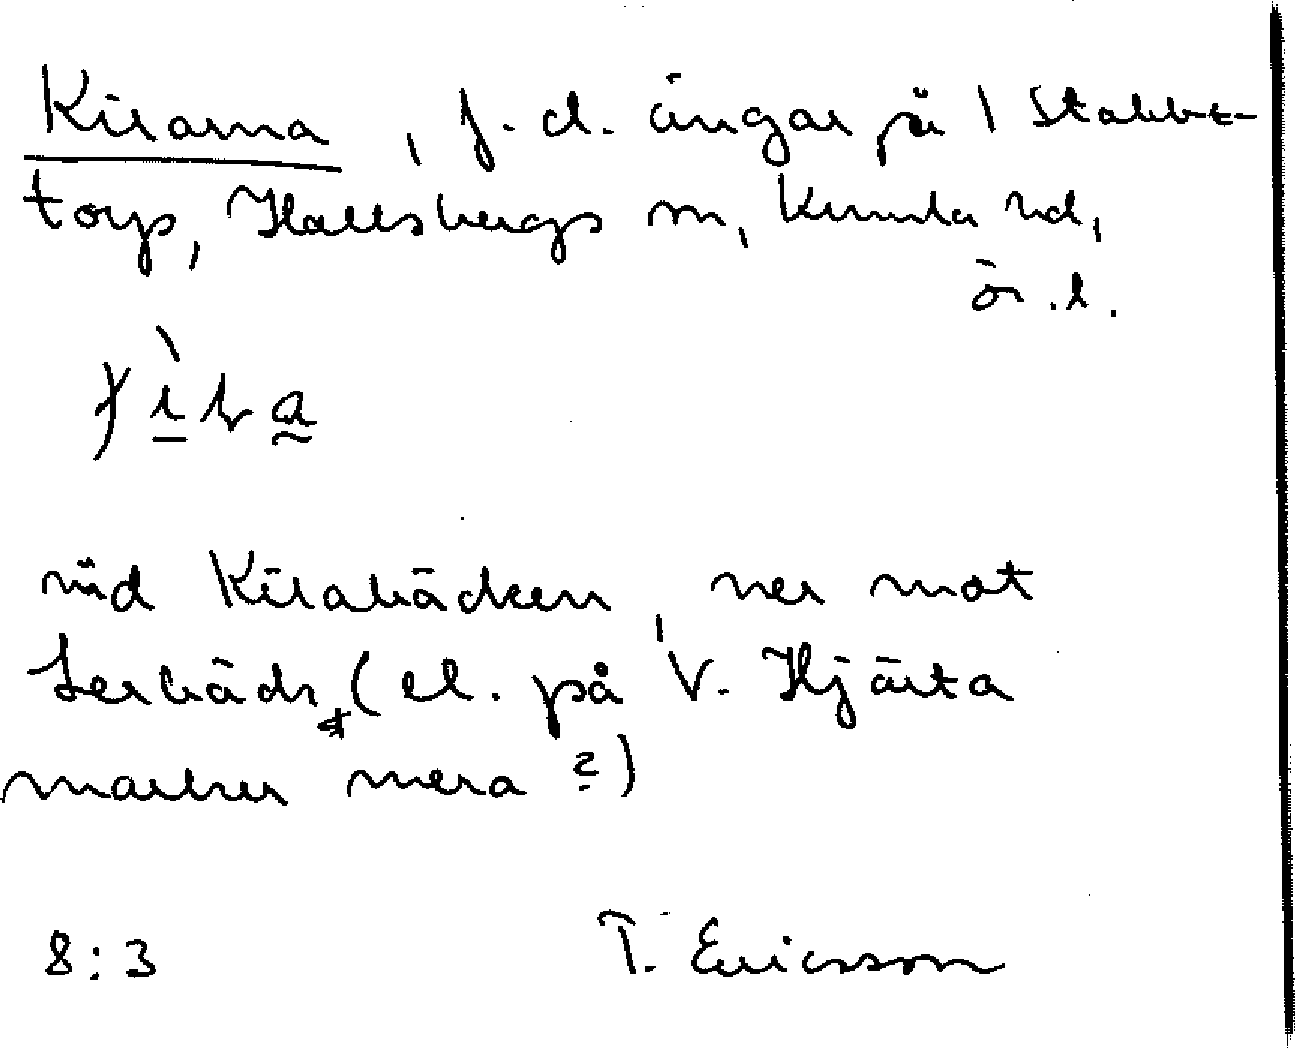 Kilarna, f. d. ängar på 1 Stabbe-
torp, Hallsbergs sn, Kumla hd,
ör. l.
vid Kilabäcken, ner mot
Lerbäck (el. på V. Hjärta
marker mera?)
8:3 T. Ericsson